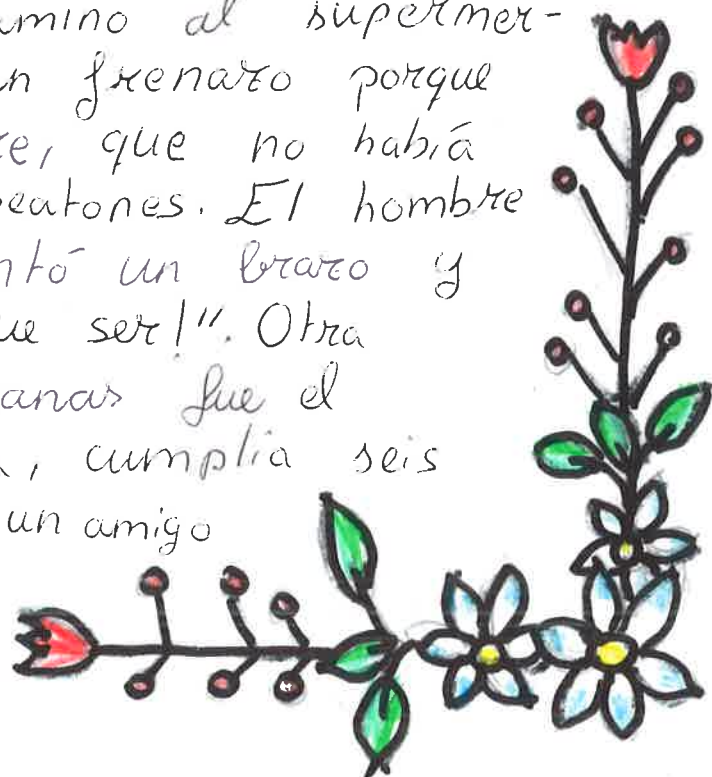 amino al supermer-
n frenazo porque
e, que no había
peatones. El hombre
ntó un brazo y
ue ser!". Otra
anas fue el
, cumplía seis
un amigo